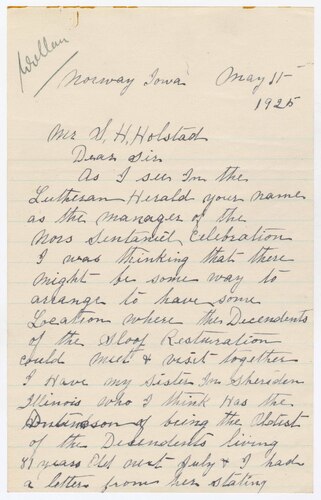 Norway Iowa May 15
1925
Mr S, H, Holstad
Dear Sir
As I see In the
Lutheran Herald your name
as the manager of the
Nors Sentaniel Celebration
I was thinking that there
might be some way to
arrange to have some
Location where the Decendents
of the Sloop Resturation
could meet & visit together
I Have my Sister In Sheriden
Illinois who I think Has the
of being the Oldest
of the Decendents living
81 years Old next July & I had
a letters from her stating